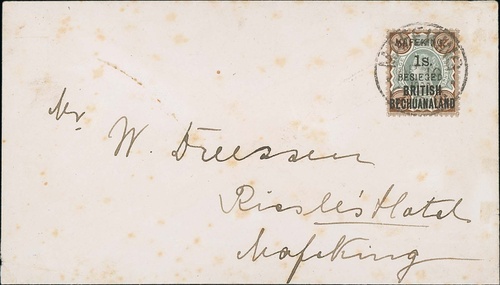 MAFEKING,
1s.
BESIEGED.
BRITISH
BECHUANALAND
Mr. W. Dreessen
Riesle's Hotel
Mafeking